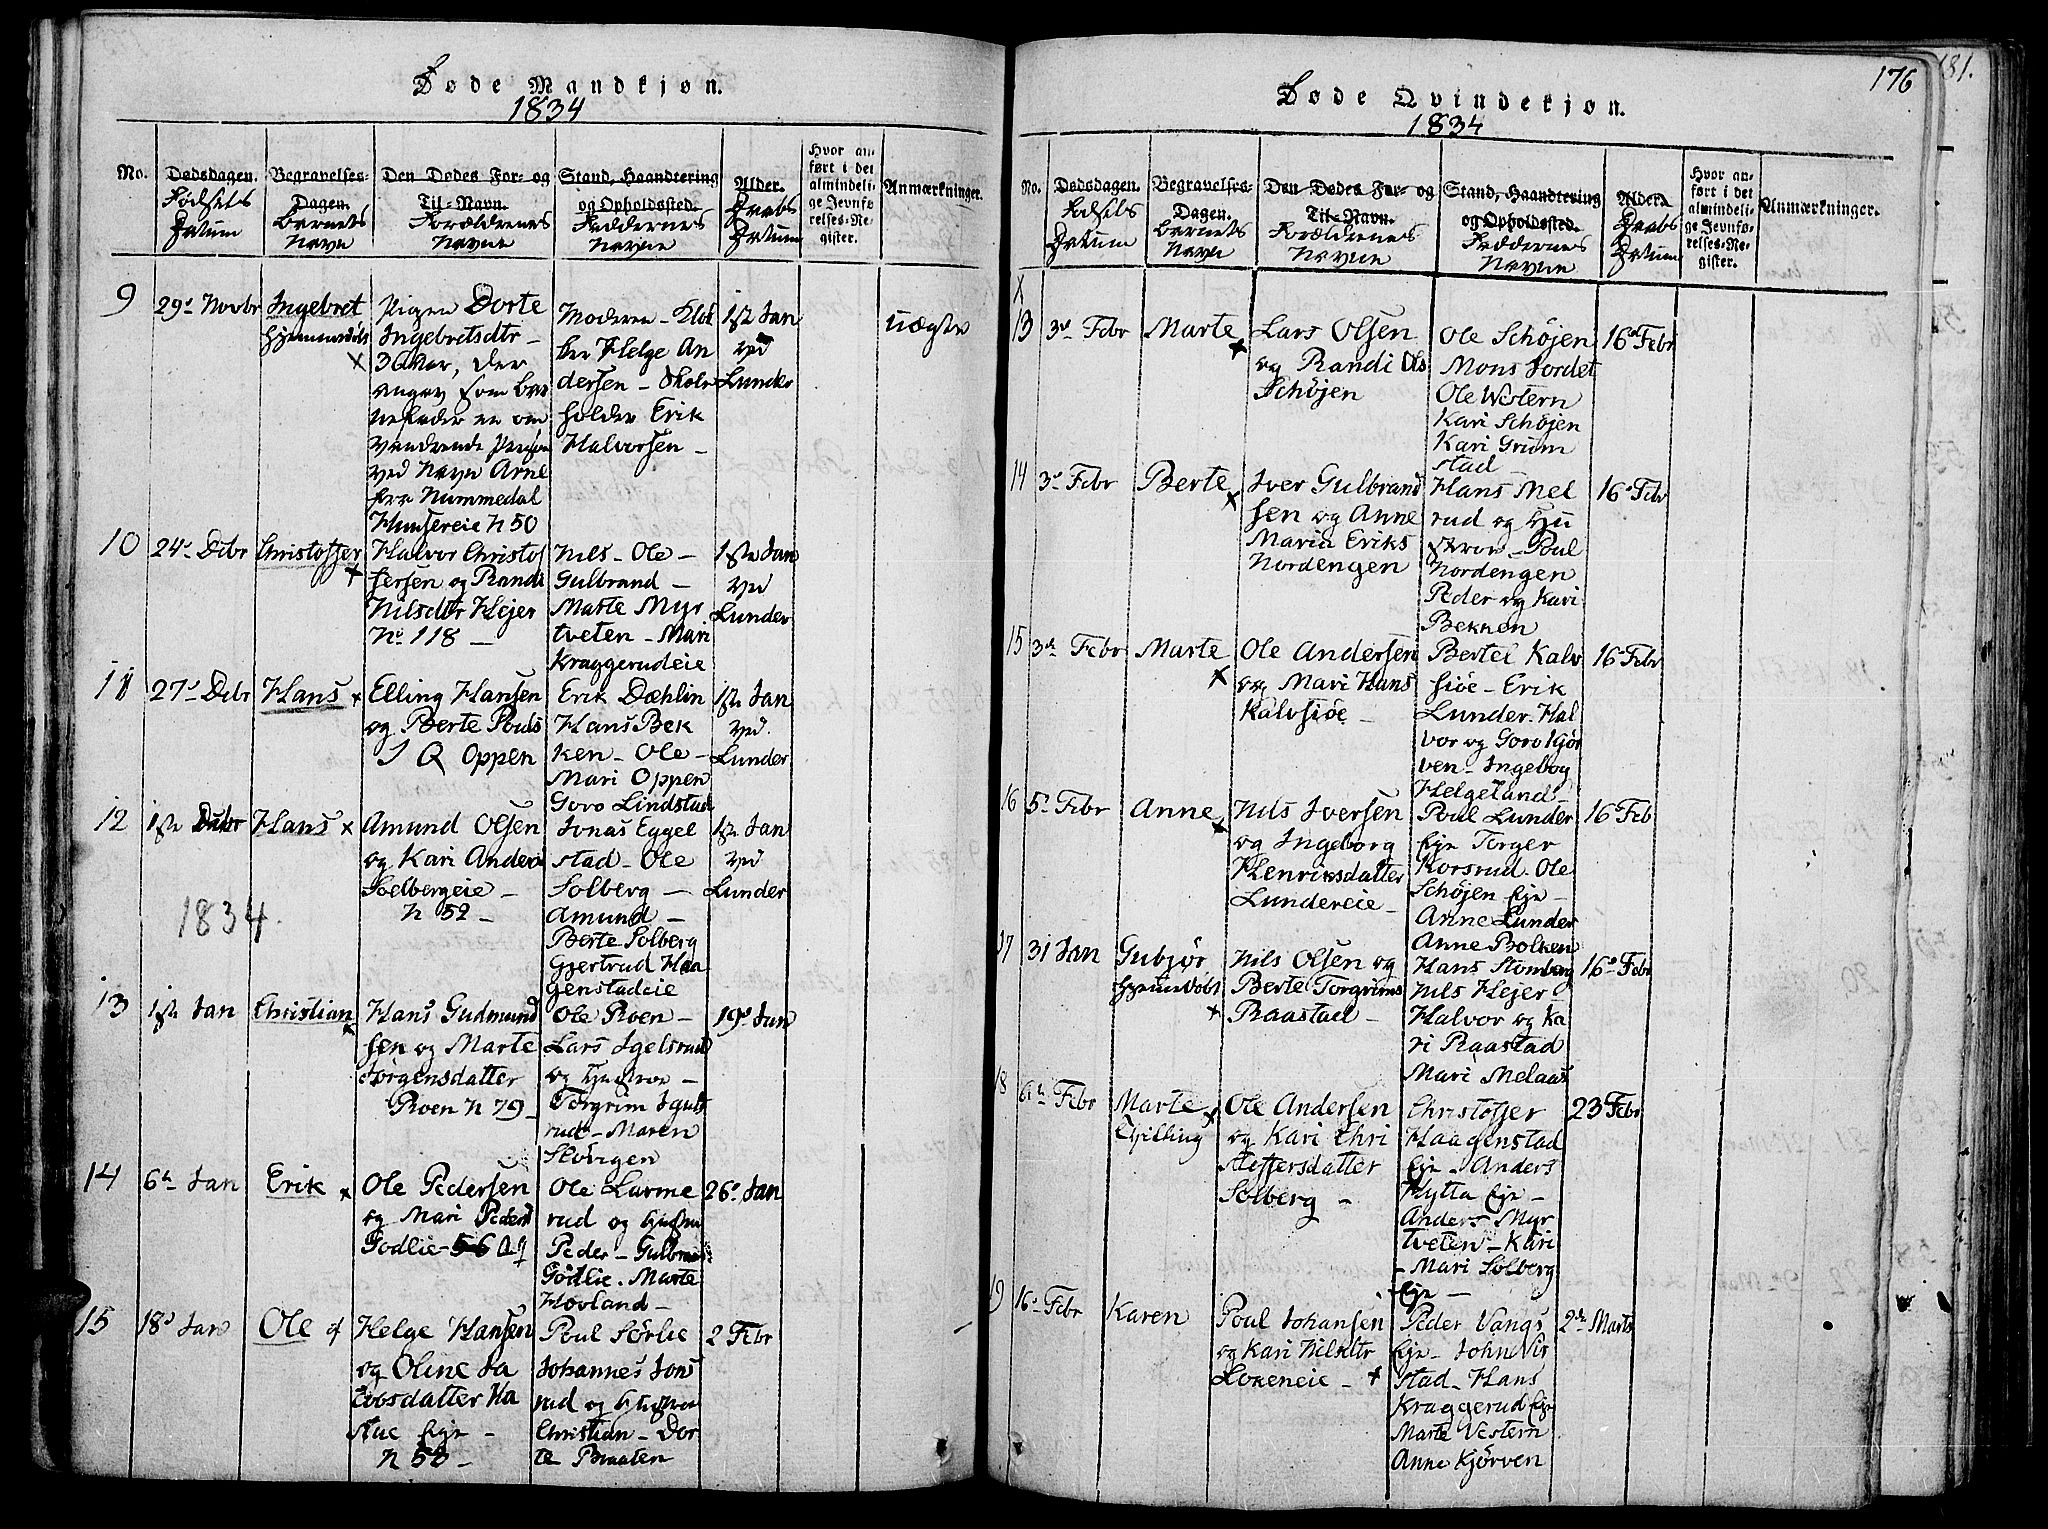 Døde Mandkjøn.
1834
No.
Dødsdagen.
Fødsels
Datum
Begravelses-
Dagen.
Barnets
Navn
Den Dødes For- og
Til-Navn.
Forældrenes
Navne
Stand, Haandtering
og Opholdssted.
Faddernes
Navne
Alder.
Daabs
Datum
Hvor an-
ført i det
almindeli-
ge Jevnfø-
relses-Re-
gister.
Anmærkninger.
9 29d Novbr
Ingebret
hjemmedøbt
x
Pigen Dorte
Ingebretsdtr -
Som Bar
ved Navn Arne
fra Nummedal
Hunsereie N 50
Moderen -
Helge An
dersen - Skole
holder Erik
Halvorsen -
1ste Jan
ved
Lunder
uægte
10 24d Debr
Christoffer
x
Halvor Christof
fersen og Randi
Nilsdtr Hejer
No 118 -
Nils - Ole -
Gulbrand -
Marte Myr
tveten - Mari
Kraggerudeie
1ste Jan
ved
Lunder
11 27d Debr
Hans x
Elling Hansen
og Berte Pouls
Oppen
Erik Dæhlin
Hans Bek
ken - Ole -
Mari Oppen
Goro Lindstad
1ste Jan
ved
Lunder
12 1ste Debr
Hans x
Amund Olsen
og Kari Anders
Solbergeie -
N 52 -
Jonas Eggel
stad - Ole
Solberg -
Amund -
Berte Solberg
Gjertrud Haa
genstadeie
1ste Jan
ved
Lunder
1834.
13 1ste Jan
Christian
x
Hans Gudmund
sen og Marte
Jorgensdatter
Roen N 79 -
Ole Roen -
Lars Igelsrud
og Hustroe -
Torgrim Iguls
rud - Maren
Skovigen
19d Jan
14 6te Jan
Erik x
Ole Pedersen
og Mari Peders
Godlie 56
Ole Lurme
rud og Hustru
Peder - Gulbrand
Godlie. Marte
Hovland -
26d Jan
15 18d Jan
Ole
Helge Hansen
og Oline Ja
cobsdatter Ka
stue Eje -
N 58 -
Poul Sörlie
Johannes Jons
rud og Hustroe
Christian - Dor
te Braaten
2 Febr
Døde Qvindekjøn.
1834
176
181.
No.
Dødsdagen.
Fødsels
Datum
Begravelses-
Dagen.
Barnets
Navn
Den Dødes For- og
Til-Navn.
Forældrenes
Navne
Stand, Haandtering
og Opholdssted.
Faddernes
Navne
Alder.
Daabs
Datum
Hvor an-
ført i det
almindeli-
ge Jevnfø-
relses-Re-
gister.
Anmærkninger.
x
13 3de Febr
Marte
x
Lars Olsen
og Randi Ols
Schöjen
Ole Schöjen
Mons Jordet
Ole Western
Kari Schöjen
Kari Grim
stad
16d Febr
14 3de Febr
Berte
x
Iver Gulbrand
sen og Anne
Maria Eriks
Nordengen
Hans Mel
rud og Hu
stroe - Poul
Nordengen
Peder og Kari
Bekken
16d Febr
15 3de Febr
Marte
x
Ole Andersen
og Mari Hans
Kalvsiöe -
Bertel Kalv
siöe - Erik
Lunder. Hal
vor og Goro Kjör
ven - Ingebog
Helgeland -
16 Febr
16 5te Febr
Anne
x
Nils Iversen
og Ingeborg
Henriksdatter
Lundereie -
Poul Lunder
Eje Torger
Korsrud. Ole
Schöjen Eje -
Anne Lunder
Anne Bolken
16 Feb
17 31 Jan
Gubjør
hjemmedøbt
x
Nils Olsen og
Berte Torgrims
Raastad -
Hans Stomberg
Nils Hejer
Halvor og Ka
ri Raastad
Mari Melaas
16d Febr
18 6te Febr
Marte x
Tvilling
Ole Andersen
og Kari Chri
stoffersdatter
Solberg -
Christoffer
Haagenstad
Eje - Anders
Hytta Eje -
Anders Myr
tveten - Kari
- Mari Solberg
Eje -
23 Febr
19 16d Febr
Karen
Poul Johansen
og Kari Nilsdtr
Lokeneie - x
Peder Vangs
Eje - John Vis
stad - Hans
Kraggerud Eje
Marte Vestern
Anne Kjörven
2de Marts